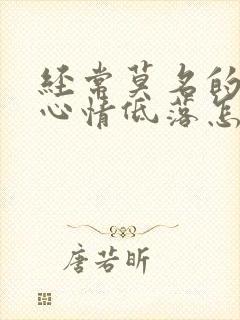 经常莫名的
心情低落怎
唐若昕